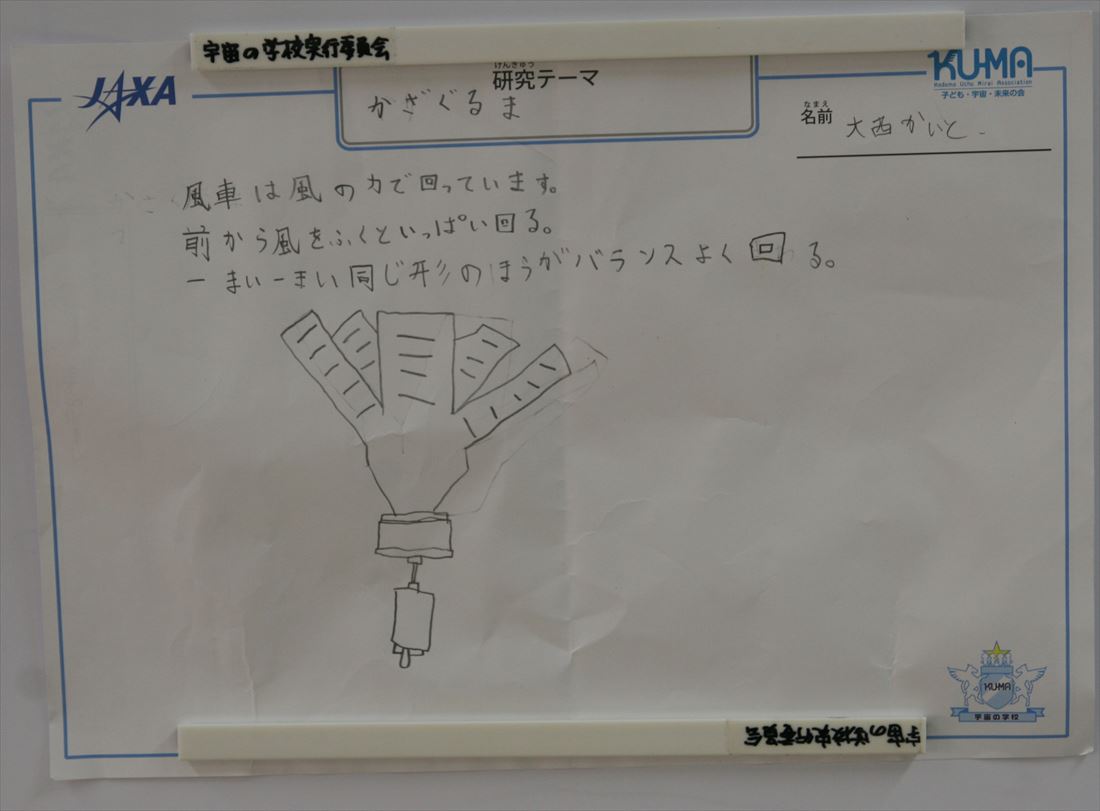 宇宙の学校実行委員会
JAXA
けんきゅう
研究テーマ
かざぐるま
KU-MA
Kodomo Uchu Mirai Association
子ども・宇宙・未来の会
なまえ
名前
大西かいと
風車は風の力で回っています。
前から風をふくといっぱい回る。
一まい一まい同じ形のほうがバランスよく回る。
KU-MA
宇宙の学校
宇宙の学校実行委員会